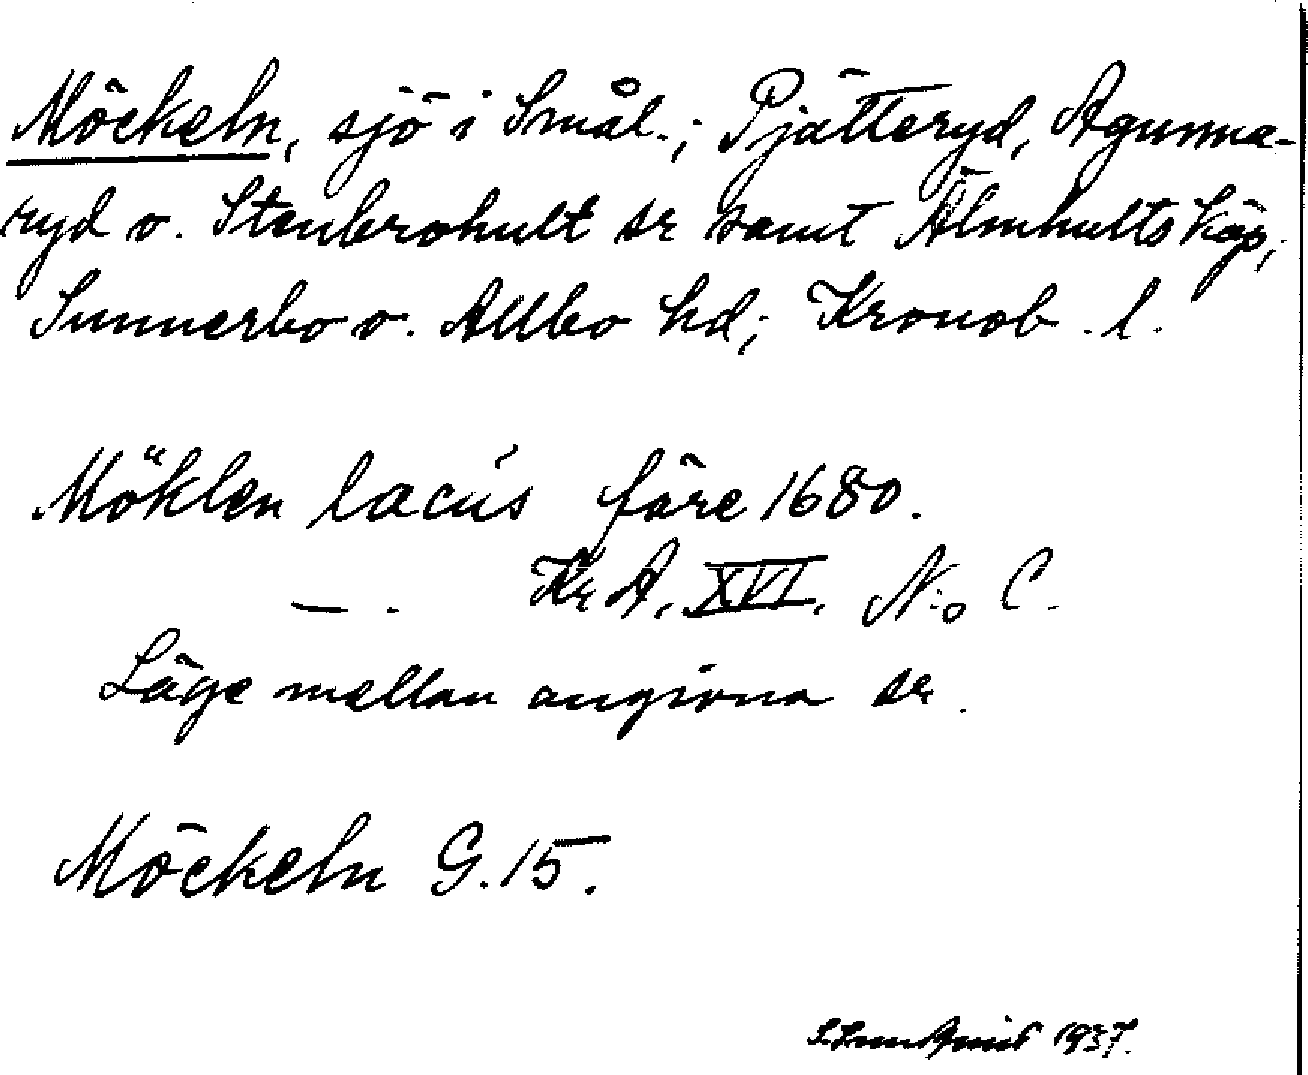 Möckeln, sjö i Smål.; Pjätteryd, Agunna-
ryd o. Stenbrohult sr samt Älmhults köp,
Sunnerbo o. Allbo hd; Kronob. l.
Möklen lacus före 1680.
— . Kr A. XVI. N:o C.
Läge mellan angivna sr.
Möckeln G.15.
1937.